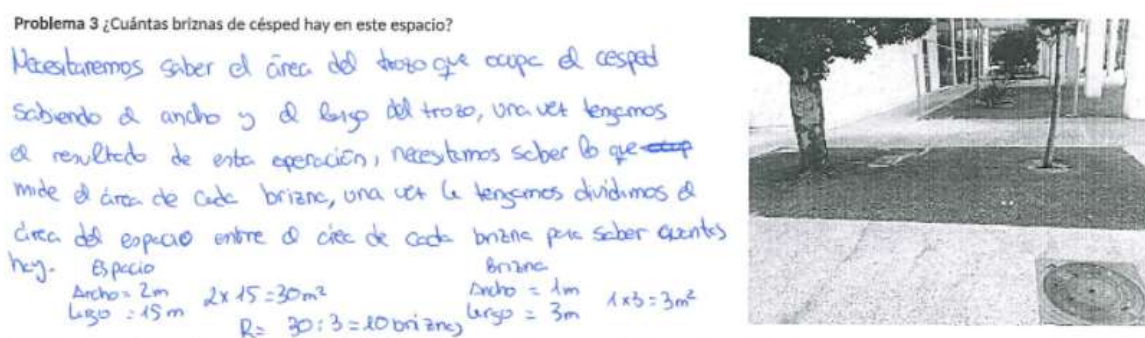 Problema 3 ¿Cuántas briznas de césped hay en este espacio?
Necesitaremos saber el área del trozo que ocupa el cesped
sabiendo el ancho y el largo del trozo, una vez tengamos
el resultado de esta operación, necesitamos saber lo que
mide el área de cada brizna, una vez la tengamos dividimos el
área del espacio entre el área de cada brizna para saber cuantas
hay.
Espacio
Ancho = 2m
Largo = 15m
2 x 15 = 30m²
Brizna
Ancho = 1m
largo = 3m
1 x 3 = 3m²
R = 30 : 3 = 10 briznas